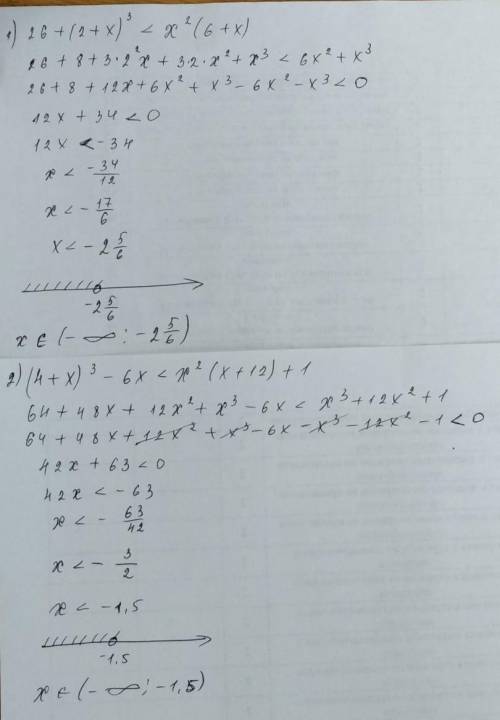 1) 26+(2+x)³ < x²(6+x)
26+8+3·2²x+3·2·x²+x³ < 6x²+x³
26+8+12x+6x²+x³-6x²-x³<0
12x+34<0
12x <-34
x < -34/12
x < -17/6
x < -2 5/6
-2 5/6
x ∈ (-∞; -2 5/6)
2) (4+x)³-6x < x²(x+12)+1
64+48x+12x²+x³-6x < x³+12x²+1
64+48x+12x²+x³-6x-x³-12x²-1<0
42x+63<0
42x < -63
x < -63/42
x < -3/2
x < -1,5
-1,5
x ∈ (-∞; -1,5)